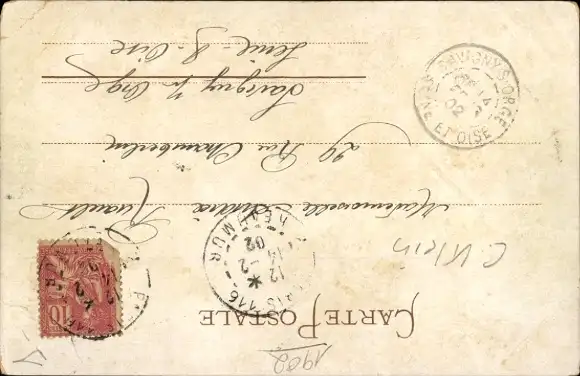 CARTE POSTALE
Mademoiselle Maria
Ruault
29 Rue Chamberlin
Savigny s/ Orge
Seine-&-Oise
SAVIGNY-S-ORGE
SNE-ET-OISE
02
PARIS 116
REAUMUR
12
14-2
02
10
C Klein
1902